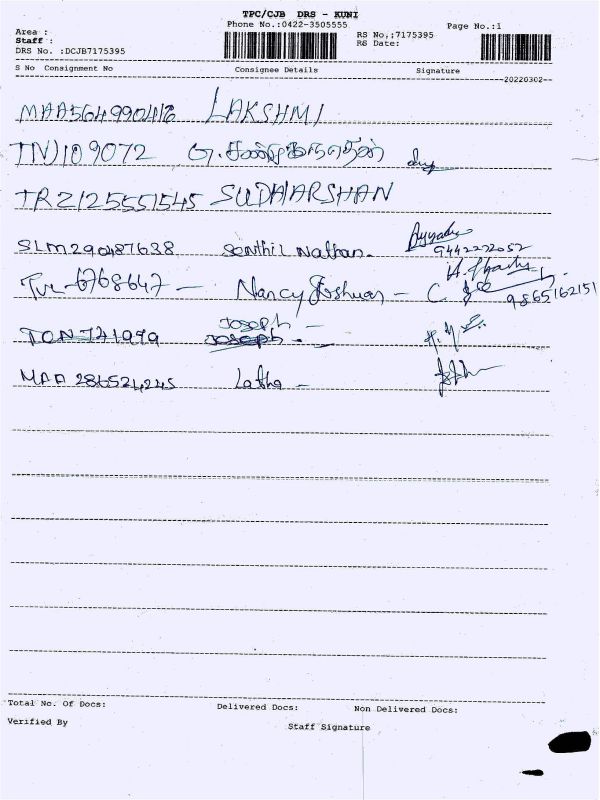 TPC/CJB DRS - KUNI
Phone No.:0422-3505555 Page No.:1
Area : RS No.:7175395
Staff : RS Date:
DRS No. :DCJB7175395
S No Consignment No Consignee Details Signature
20220302
MAA564990416 LAKSHMI
TNJ109072
TRZ125551545 SUDHARSHAN
SLM290487638 Senthil Nathan. 9442272052
6768647 Nancy Joshua 9865162151
Joseph
Joseph
MAA 286524245 Latha
Total No. Of Docs: Delivered Docs: Non Delivered Docs:
Verified By Staff Signature